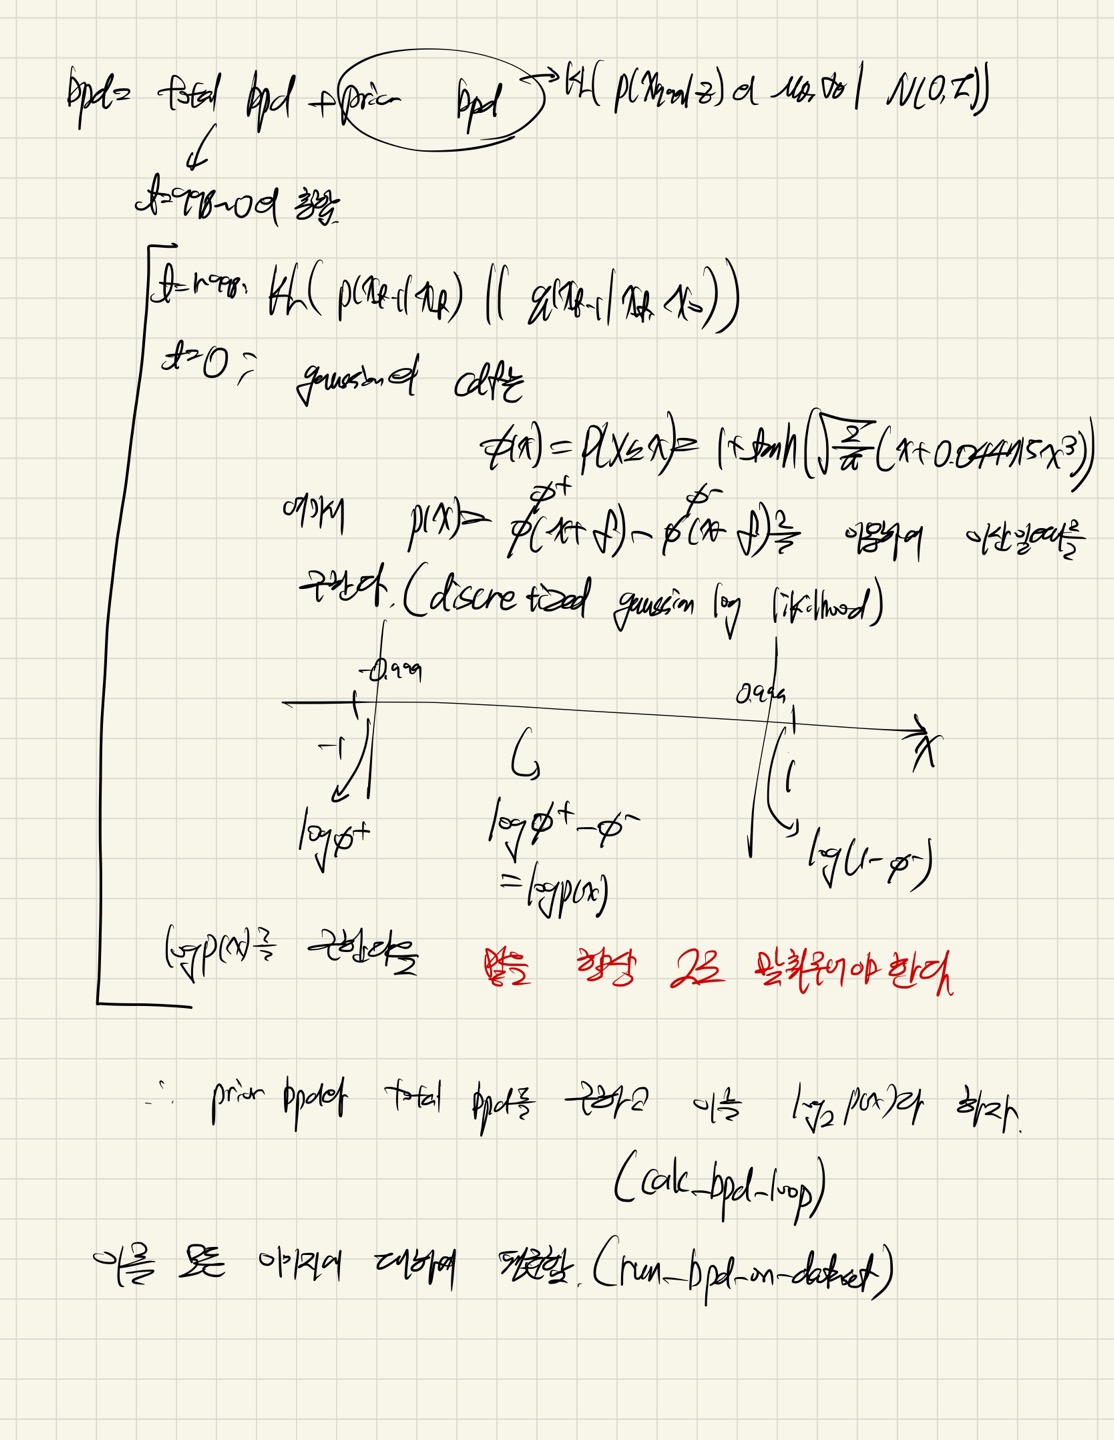 bpd = total bpd + prior bpd → KL( p(x_999|z)의 μ_θ, σ_θ | N(0, I))
t=998~0의 합
t=1~998: KL( p(x_t-1|x_t) || q(x_t-1|x_t, x_0))
t=0 ; gaussian의 cdf는
φ(x) = P(X≤x) = 1+tanh(√(2/π) (x+0.044715x³))
φ⁺ φ⁻
여기서 p(x) = φ(x+δ) - φ(x-δ)를 이용하여
구한다. (discretized gaussian log likelihood)
-0.999 0.999
-1 1 x
logφ⁺ logφ⁺-φ⁻ log(1-φ⁻)
= logp(x)
logp(x)를 구한다음 항상 2로 해야 한다
∴ prior bpd와 total bpd를 구하고 이를 log₂ p(x)라 하자.
(calc_bpd_loop)
이를 모든 이미지에 대하여 평균함. (run_bpd_on_dataset)